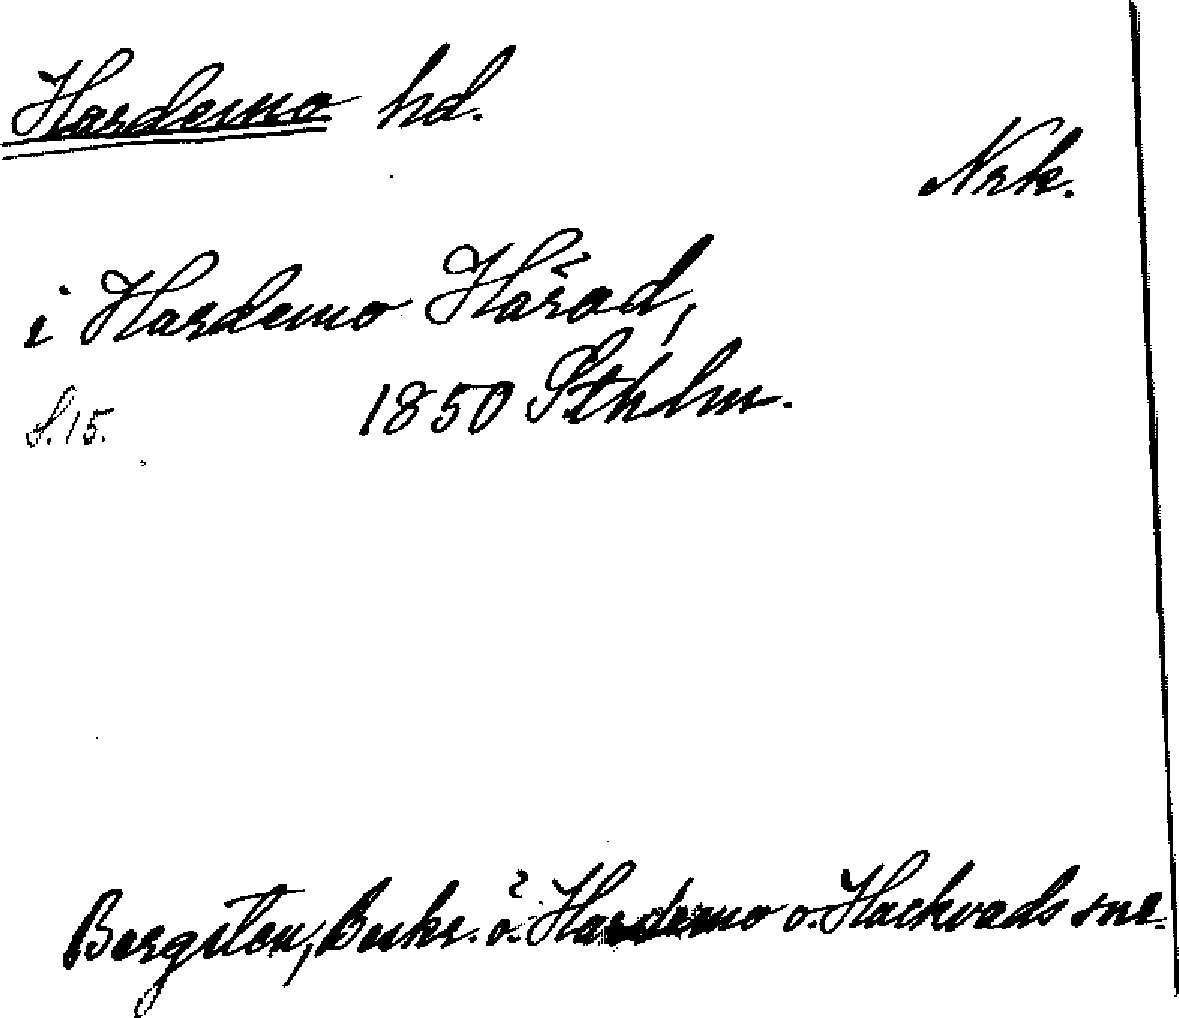 Hardemo hd.
Nrk.
i Hardemo Härad,
S. 15. 1850 Sthlm.
Bergsten, Beskr. ö. Hardemo o. Hackvads snr.